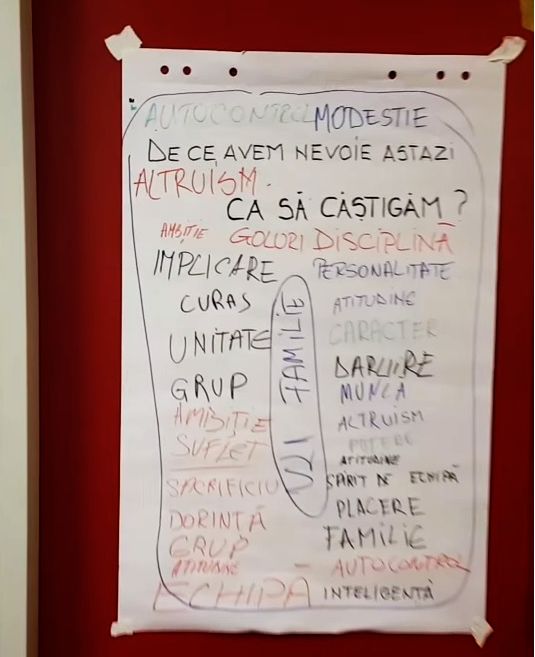 AUTOCONTROL MODESTIE
DE CE AVEM NEVOIE ASTAZI
ALTRUISM.
CA SĂ CÂȘTIGĂM ?
AMBIȚIE GOLURI DISCIPLINĂ
IMPLICARE PERSONALITATE
CURAS ATITUDINE
UNITATE CARACTER
GRUP DARUIRE
AMBIȚIE MUNCA
SUFLET ALTRUISM
SACRIFICIU PUTERE
ATITUDINE
SPIRIT DE ECHIPĂ
DORINȚĂ PLACERE
GRUP FAMILIE
ATITUDINE AUTOCONTROL
ECHIPĂ INTELIGENTĂ
FAMILIE